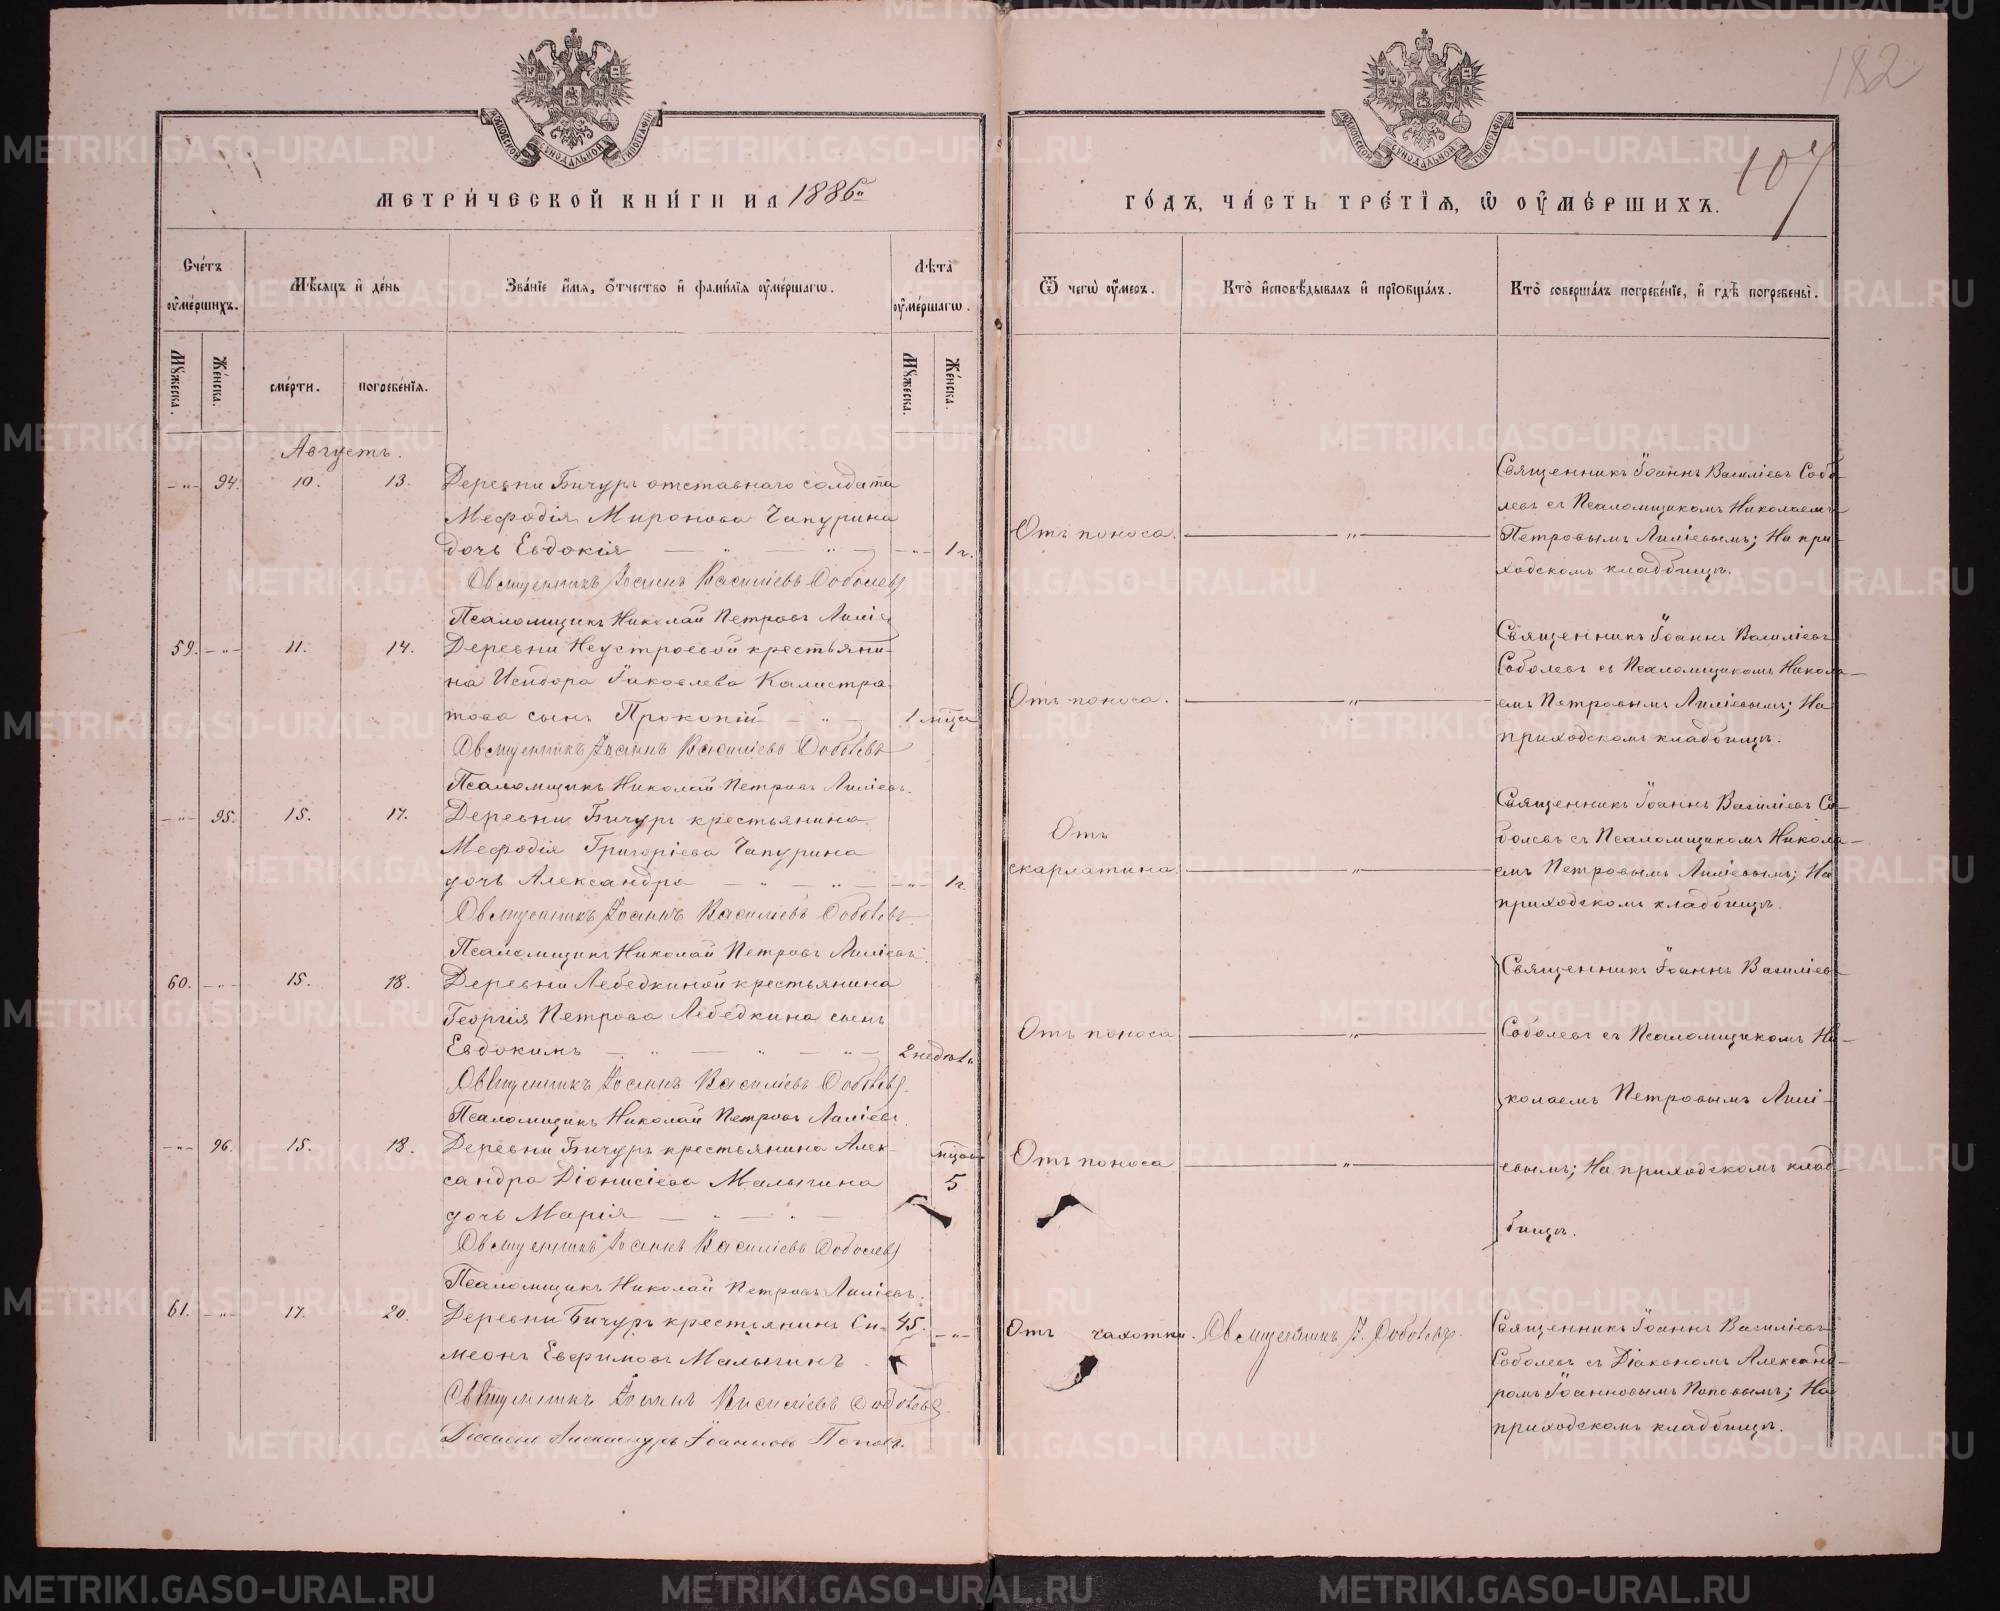 182
107
МЕТРИ́ЧЕСКОЙ КНИ́ГИ НА 1886й
ГО́ДЪ, ЧА́СТЬ ТРЕ́ТІѦ, Ѿ ОУМЕ́РШИХЪ.
Сче́тъ оуме́ршихъ.
Мѣ́сяцъ и де́нь
Зва́ніе и́мя, о́тчество и фами́лія оуме́ршагѡ.
Лѣта̀ оуме́ршагѡ.
Ѿ чегѡ̀ оу́меръ.
Кто̀ исповѣ́дывалъ и пріобща́лъ.
Кто̀ соверша́лъ погребе́ніе, и гдѣ̀ погребены̀.
Му́жеска.
Же́нска.
сме́рти.
погребе́нія.
Му́жеска.
Же́нска.
Августъ.
-"- 94. 10. 13. Деревни Бичуръ отставнаго солдата
Меѳодія Миронова Чапурина
дочь Евдокія — " — " — -"- 1 г.
Священникъ Іоаннъ Василіевъ Соболевъ
Псаломщикъ Николай Петровъ Лиліев
Отъ поноса. — " —
Священникъ Іоаннъ Василіевъ Собо-
левъ съ Псаломщикомъ Николаемъ
Петровымъ Лиліевымъ; На при-
ходскомъ кладбищѣ.
59. -"- 11. 14. Деревни Неустроевой крестьяни-
на Исидора Іаковлева Калистра-
това сынъ Прокопій — " — 1 мѣца
Священникъ Іоаннъ Василіевъ Соболевъ
Псаломщикъ Николай Петровъ Лиліевъ.
Отъ поноса. — " —
Священникъ Іоаннъ Василіевъ
Соболевъ съ Псаломщикомъ Никола-
емъ Петровымъ Лиліевымъ; На
приходскомъ кладбищѣ.
-"- 95. 15. 17. Деревни Бичуръ крестьянина
Меѳодія Григоріева Чапурина
дочь Александра — " — " — -"- 1 г.
Священникъ Іоаннъ Василіевъ Соболевъ
Псаломщикъ Николай Петровъ Лиліевъ.
Отъ
скарлатина. — " —
Священникъ Іоаннъ Василіевъ Со-
болевъ съ Псаломщикомъ Никола-
емъ Петровымъ Лиліевымъ; На
приходскомъ кладбищѣ.
60. -"- 15. 18. Деревни Лебедкиной крестьянина
Георгія Петрова Лебедкина сынъ
Евдокимъ — " — " — " — 2 недѣль
Священникъ Іоаннъ Василіевъ Соболевъ.
Псаломщикъ Николай Петровъ Лиліевъ.
Отъ поноса — " —
Священникъ Іоаннъ Василіевъ
Соболевъ съ Псаломщикомъ Ни-
колаемъ Петровымъ Лилі-
евымъ; На приходскомъ клад-
бищѣ.
-"- 96. 15. 18. Деревни Бичуръ крестьянина Алек- мѣцовъ
сандра Діонисіева Малыгина 5
дочь Марія — " — " —
Священникъ Іоаннъ Василіевъ Соболевъ
Псаломщикъ Николай Петровъ Лиліевъ.
Отъ поноса — " —
61. -"- 17. 20. Деревни Бичуръ крестьянинъ Си- 45. -"-
меонъ Евѳимовъ Малыгинъ.
Священникъ Іоаннъ Василіевъ Соболевъ.
Діаконъ Александръ Іоанновъ Поповъ.
Отъ чахотки. Священникъ І. Соболевъ.
Священникъ Іоаннъ Василіевъ
Соболевъ съ Діакономъ Александ-
ромъ Іоанновымъ Поповымъ; На
приходскомъ кладбищѣ.
METRIKI.GASO-URAL.RU